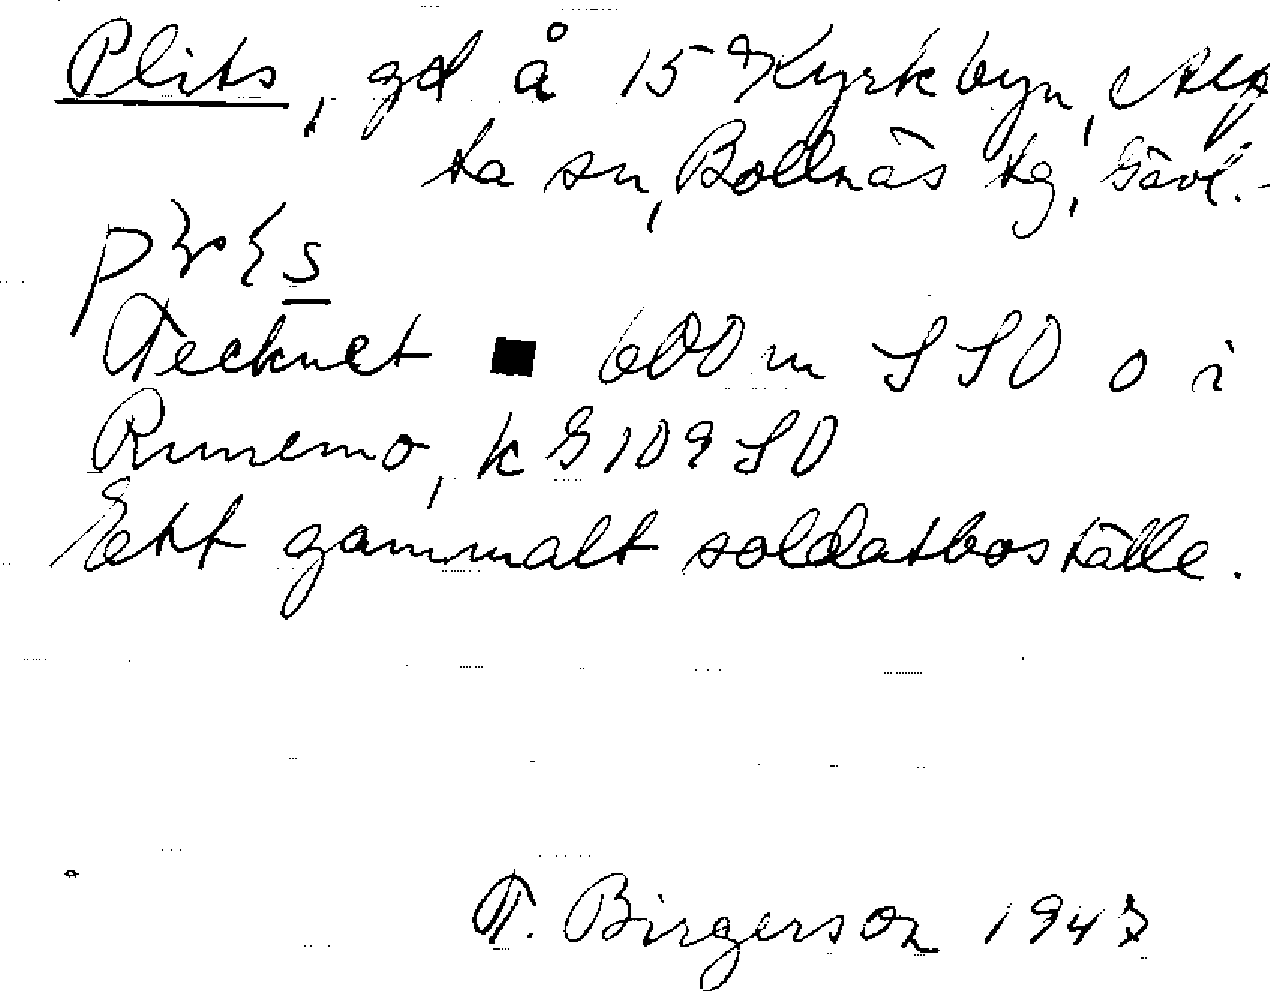 Plits, gd å 15⁹ Kyrkbyn, Alf
ta sn, Bollnäs tg, Gävl.
Tecknet ■ 600 m SSO o i
Runemo, k G 109 SO
Ett gammalt soldatboställe.
T. Birgerson 1947